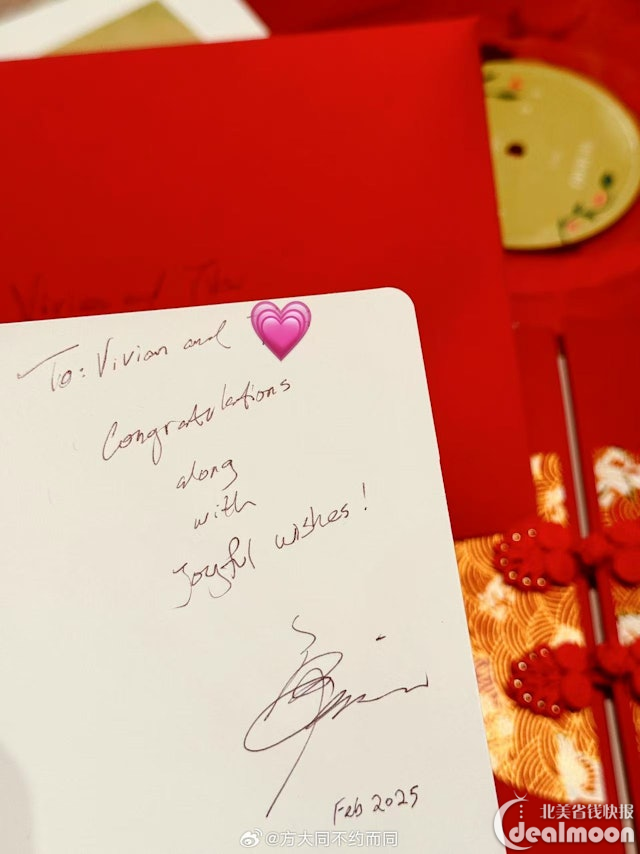 Vivian and
To: Vivian and
Congratulations
along
with
Joyful wishes!
Feb 2025
@方大同不约而同
北美省钱快报
dealmoon